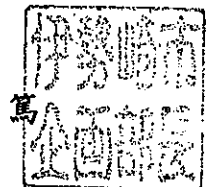 伊勢崎市
篤
企画部長